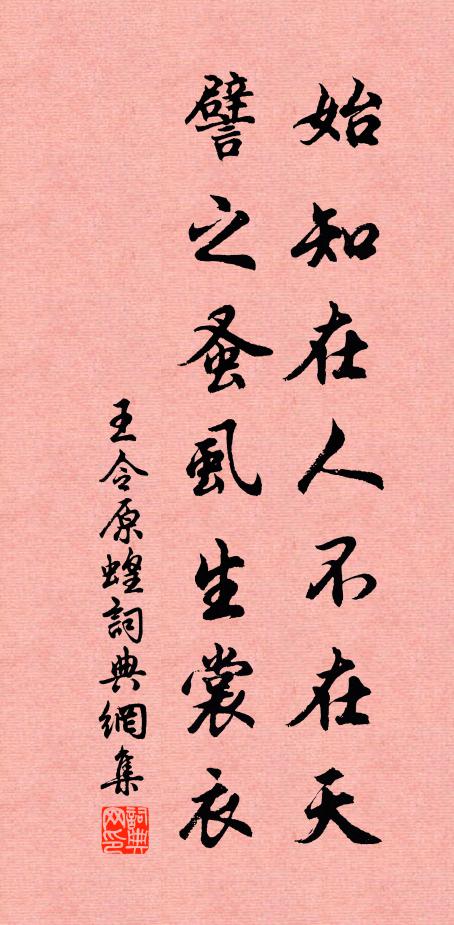 始知在人不在天
譬之蚤虱生裳衣
王令原蝗詞典網集
詞典网印